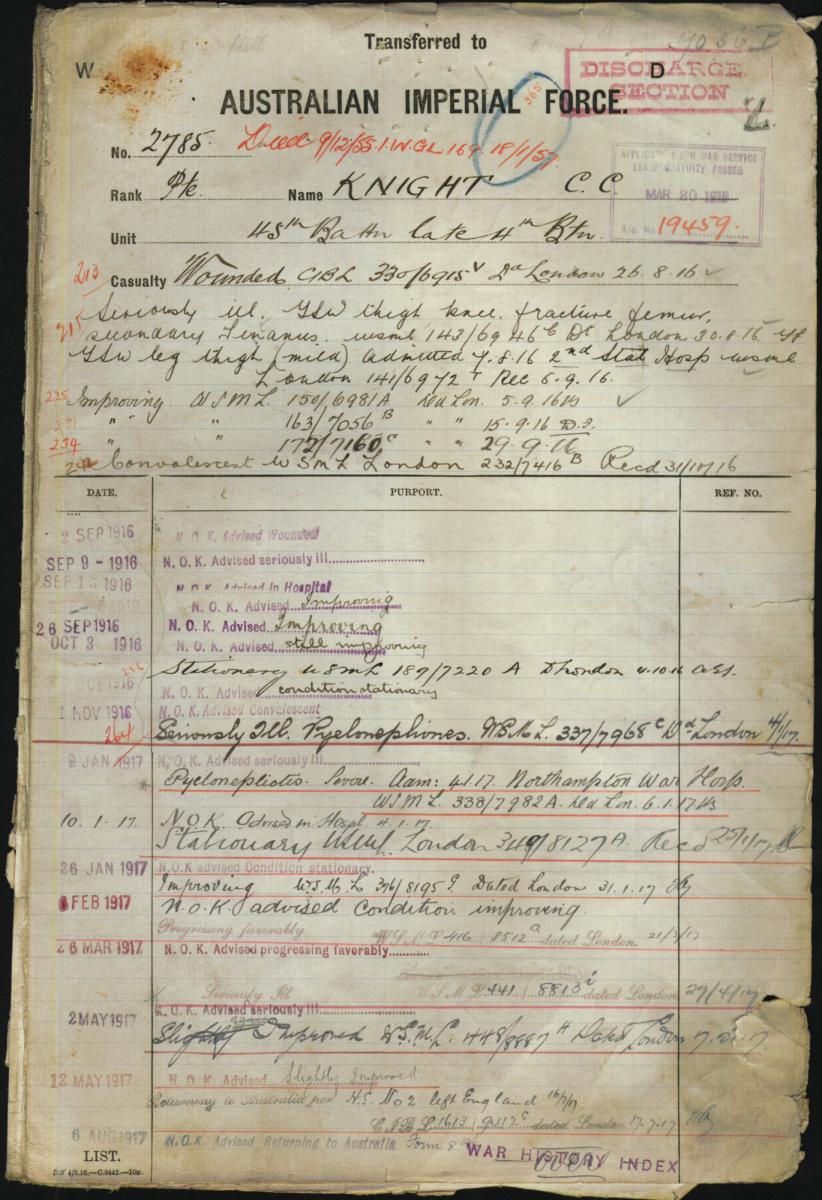 Transferred to
W
D
DISCHARGE
SECTION
AUSTRALIAN IMPERIAL FORCE.
365
No. 2785. Died 9/12/55. I.W.G.L 169. 18/1/57.
LEAVE GRATUITY PASSED
MAR 20
A/c. No. 19459.
Rank Pte. Name KNIGHT C. C.
Unit 45th Battn late 4th Btn.
213 Casualty Wounded CIBL 330/6915 v Dd London 26.8.16
Seriously ill. GSW thigh knee. fracture femur,
215 secondary Tetanus. wsml 143/6946 Dd London 30.8.16
GSW leg thigh (mild) admitted 7.8.16 2nd Stat Hosp wsml
London 141/6972 Rec 6.9.16.
225 Improving W S M L. 150/6981A Dd Lon. 5.9.16
231 " " 163/7056 B " " 15.9.16
234 " " 172/7160 c " " 29.9.16
Convalescent W S M L London 232/7416 B Recd 31/10/16
DATE. PURPORT. REF. NO.
2 SEP 1916 N. O. K. Advised Wounded
SEP 9 - 1916 N. O. K. Advised seriously ill
SEP 1 1916 N. O. K. Advised in Hospital
N. O. K. Advised Improving
26 SEP 1916 N. O. K. Advised Improving
OCT 3 1916 N. O. K. Advised still improving
Stationary W S M L 189/7220 A D London 4.10.16
1916 N. O. K. Advised condition stationary
1 NOV 1916 N. O. K. Advised Convalescent
264 Seriously Ill. Pyelonephrites. W.S.M.L. 337/7968 c Dd London 4/1/17.
9 JAN 1917 N. O. K. Advised seriously ill
Pyelonephictis. Severe. Adm: 4.1.17. Northampton War Hosp.
WSML 338/7982A. Dd Lon. 6.1.17
10.1.17. N.O.K. Advised in Hospl. 4.1.17.
Stationary WSML London 349/8127 A Recd 25/1/17
26 JAN 1917 N. O. K. advised Condition stationary.
Improving W.S.M.L 376/8195 Dated London 31.1.17
FEB 1917 N.O.K advised condition improving.
Progressing favorably W S M L 416 / 8512 a dated London 21/3/17
26 MAR 1917 N. O. K. Advised progressing favorably
Seriously Ill W S M L 441 / 8813 i dated London 27/4/17
2 MAY 1917 N. O. K. Advised again seriously ill
Slightly Improved W.S.M.L. 448/8887 H Dated London 7.5.17.
12 MAY 1917 N. O. K. Advised Slightly Improved
Returning to Australia per H.S. No 2 left England 16/7/17
C I B L 1613 / 9112 c dated London 17.7.17
6 AUG 1917 N. O. K. Advised Returning to Australia Form
LIST. WAR HISTORY INDEX
over
D.P. 4/8.16.—C.9442.—10M.